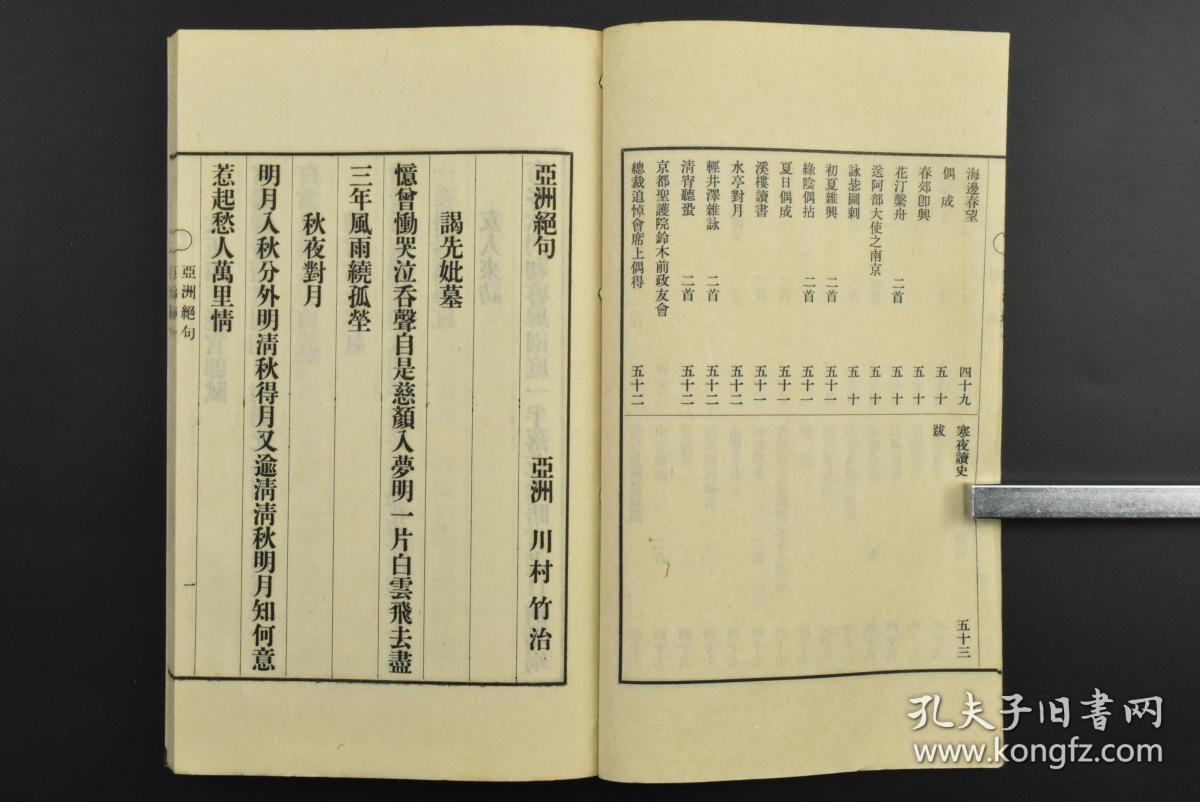 海邊春望 四十九
偶成 五十
春郊卽興 五十
花汀繫舟 二首 五十
送阿部大使之南京 五十
詠瓷圖刺 五十
初夏雜興 二首 五十一
綠陰偶拈 二首 五十一
夏日偶成 五十一
溪樓讀書 五十一
水亭對月 五十二
輕井澤雜詠 二首 五十二
淸宵聽蛩 二首 五十二
京都聖護院鈴木前政友會
總裁追悼會席上偶得 五十二
寒夜讀史 五十三
跋
亞洲絕句
亞洲 川村竹治
謁先妣墓
憶曾慟哭泣呑聲自是慈顏入夢明一片白雲飛去盡
三年風雨繞孤塋
秋夜對月
明月入秋分外明淸秋得月又逾淸淸秋明月知何意
惹起愁人萬里情
亞洲絕句
一
孔夫子旧書网
www.kongfz.com